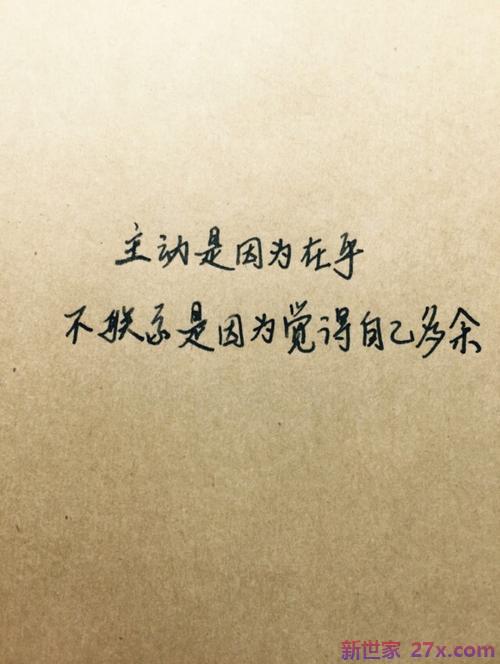 主动是因为在乎
不联系是因为觉得自己多余
新世家 27x.com